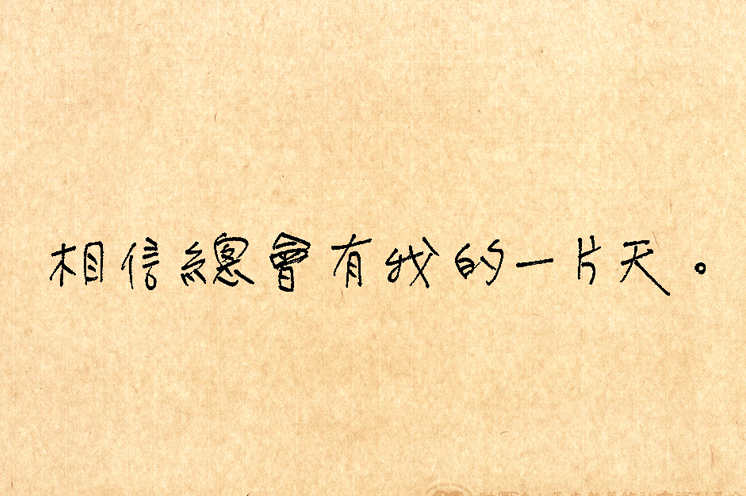 相信總會有我的一片天。